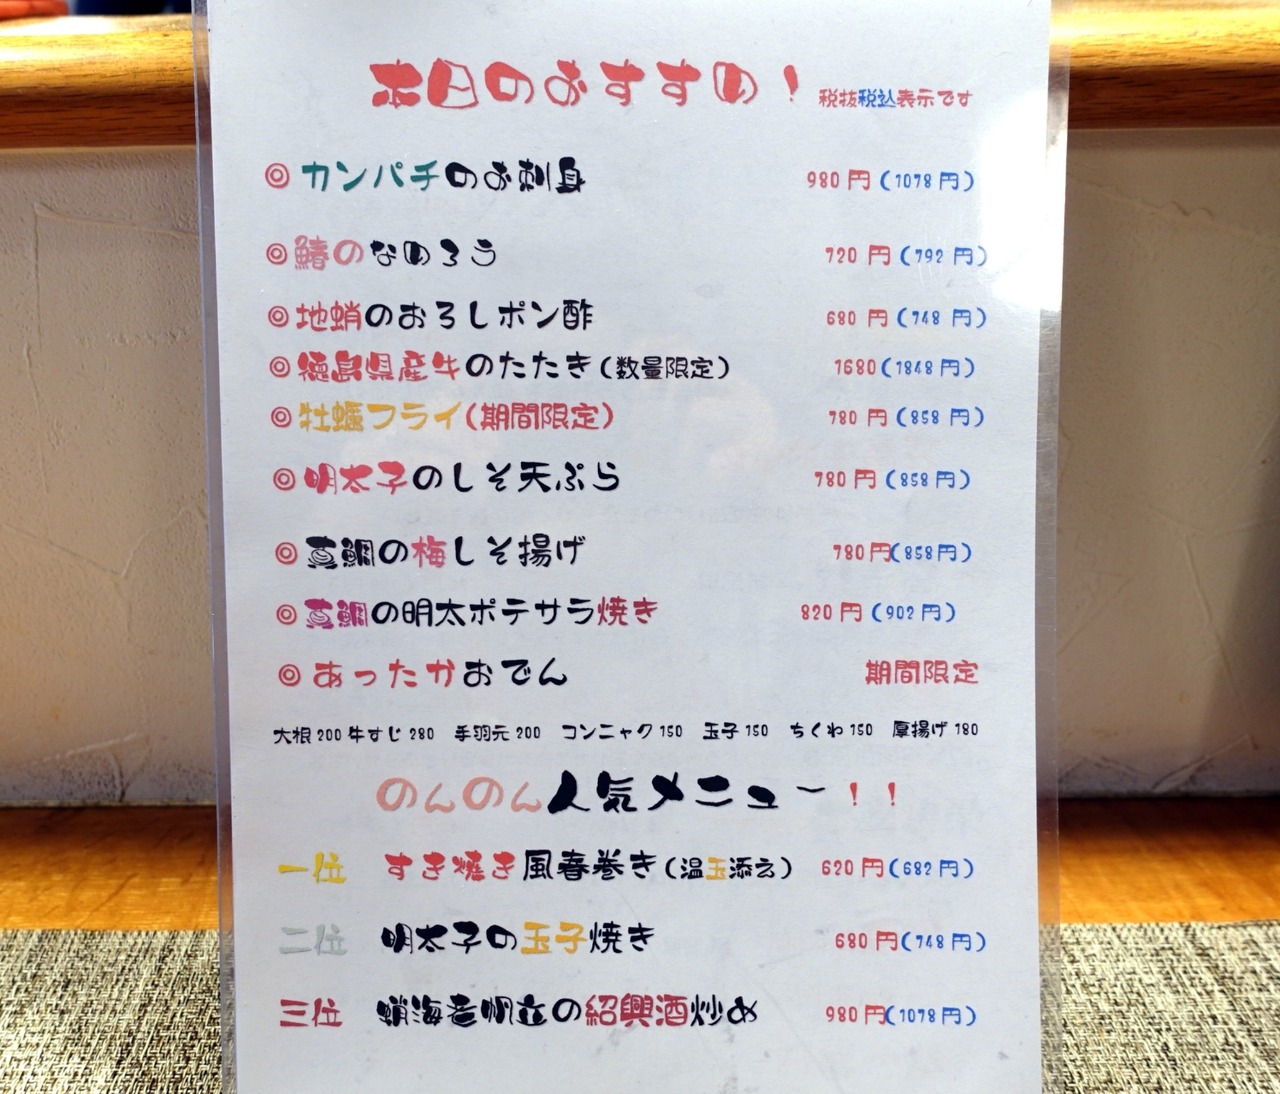 本日のおすすめ! 税抜税込表示です
◎カンパチのお刺身 980円(1078円)
◎鰆のなめろう 720円(792円)
◎地蛸のおろしポン酢 680円(748円)
◎徳島県産牛のたたき(数量限定) 1680(1848円)
◎牡蠣フライ(期間限定) 780円(858円)
◎明太子のしそ天ぷら 780円(858円)
◎真鯛の梅しそ揚げ 780円(858円)
◎真鯛の明太ポテサラ焼き 820円(902円)
◎あったかおでん 期間限定
大根200 牛すじ280 手羽元200 コンニャク150 玉子150 ちくわ150 厚揚げ180
のんのん人気メニュー!!
一位 すき焼き風春巻き(温玉添え) 620円(682円)
二位 明太子の玉子焼き 680円(748円)
三位 蛸海老帆立の紹興酒炒め 980円(1078円)